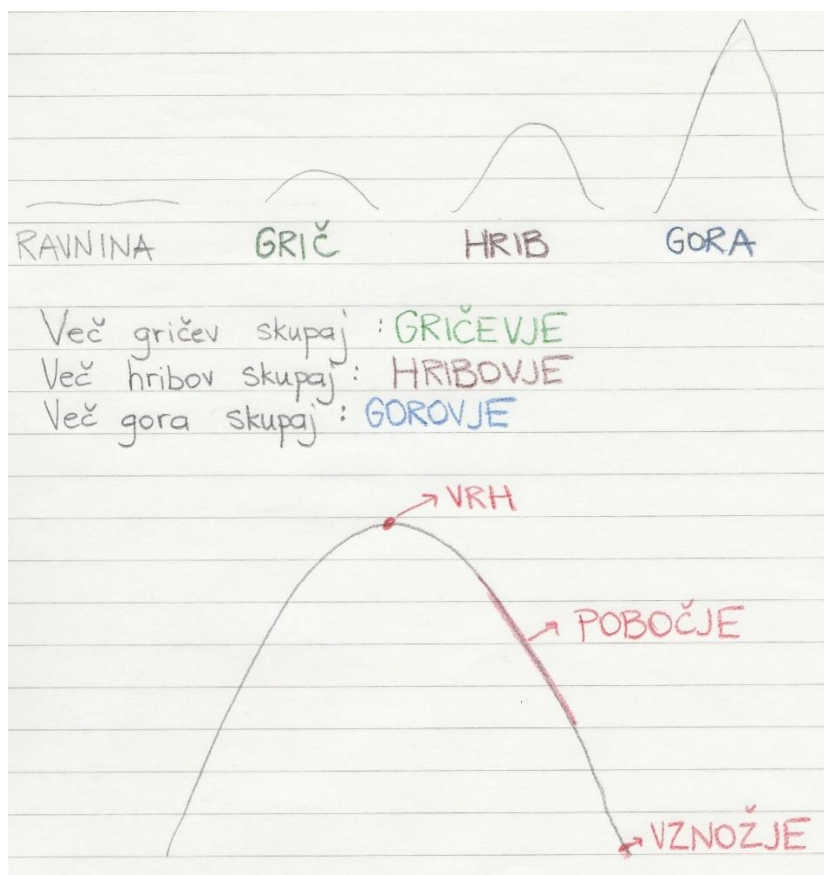 RAVNINA GRIČ HRIB GORA
Več gričev skupaj : GRIČEVJE
Več hribov skupaj : HRIBOVJE
Več gora skupaj : GOROVJE
VRH
POBOČJE
VZNOŽJE